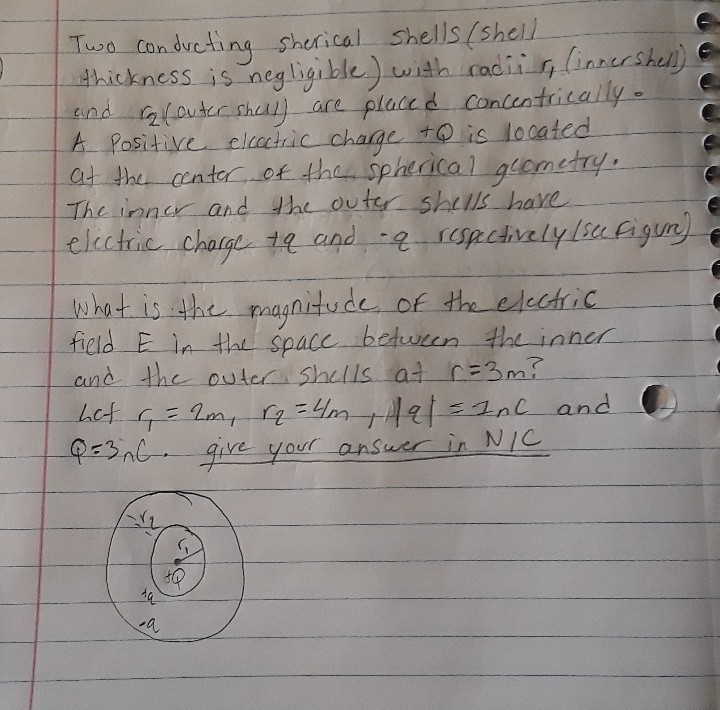 Two conducting sherical shells (shell
thickness is negligible) with radii r₁ (inner shell)
and r₂ (outer shell) are placed concentrically.
A Positive electric charge +Q is located
at the center of the spherical geometry.
The inner and the outer shells have
electric charge +q and -q respectively (see figure)
What is the magnitude of the electric
field E in the space between the inner
and the outer shells at r=3m?
Let r₁ = 2m, r₂ = 4m, |q| = 1nC and
Q=3nC. give your answer in N/C
r₂
r₁
+Q
+q
-q